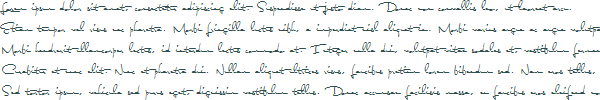 Lorem ipsum dolor sit amet, consectetur adipiscing elit. Suspendisse et justo diam. Donec non convallis leo, et laoreet arcu.
Etiam tempor vel risus nec pharetra. Morbi fringilla lectus nibh, a imperdiet nisl aliquet in. Morbi varius augue ac augue volutpat
Morbi hendrerit ullamcorper lectus, id interdum lectus commodo at. Integer nulla dui, volutpat vitae sodales et, vestibulum
Curabitur et nunc elit. Nunc et pharetra dui. Nullam aliquet ultrices risus, faucibus pretium lorem bibendum sed. Nam non tellus
Sed tortor ipsum, vehicula sed purus eget, dignissim vestibulum tellus. Donec accumsan facilisis massa, eu faucibus eros eleifend